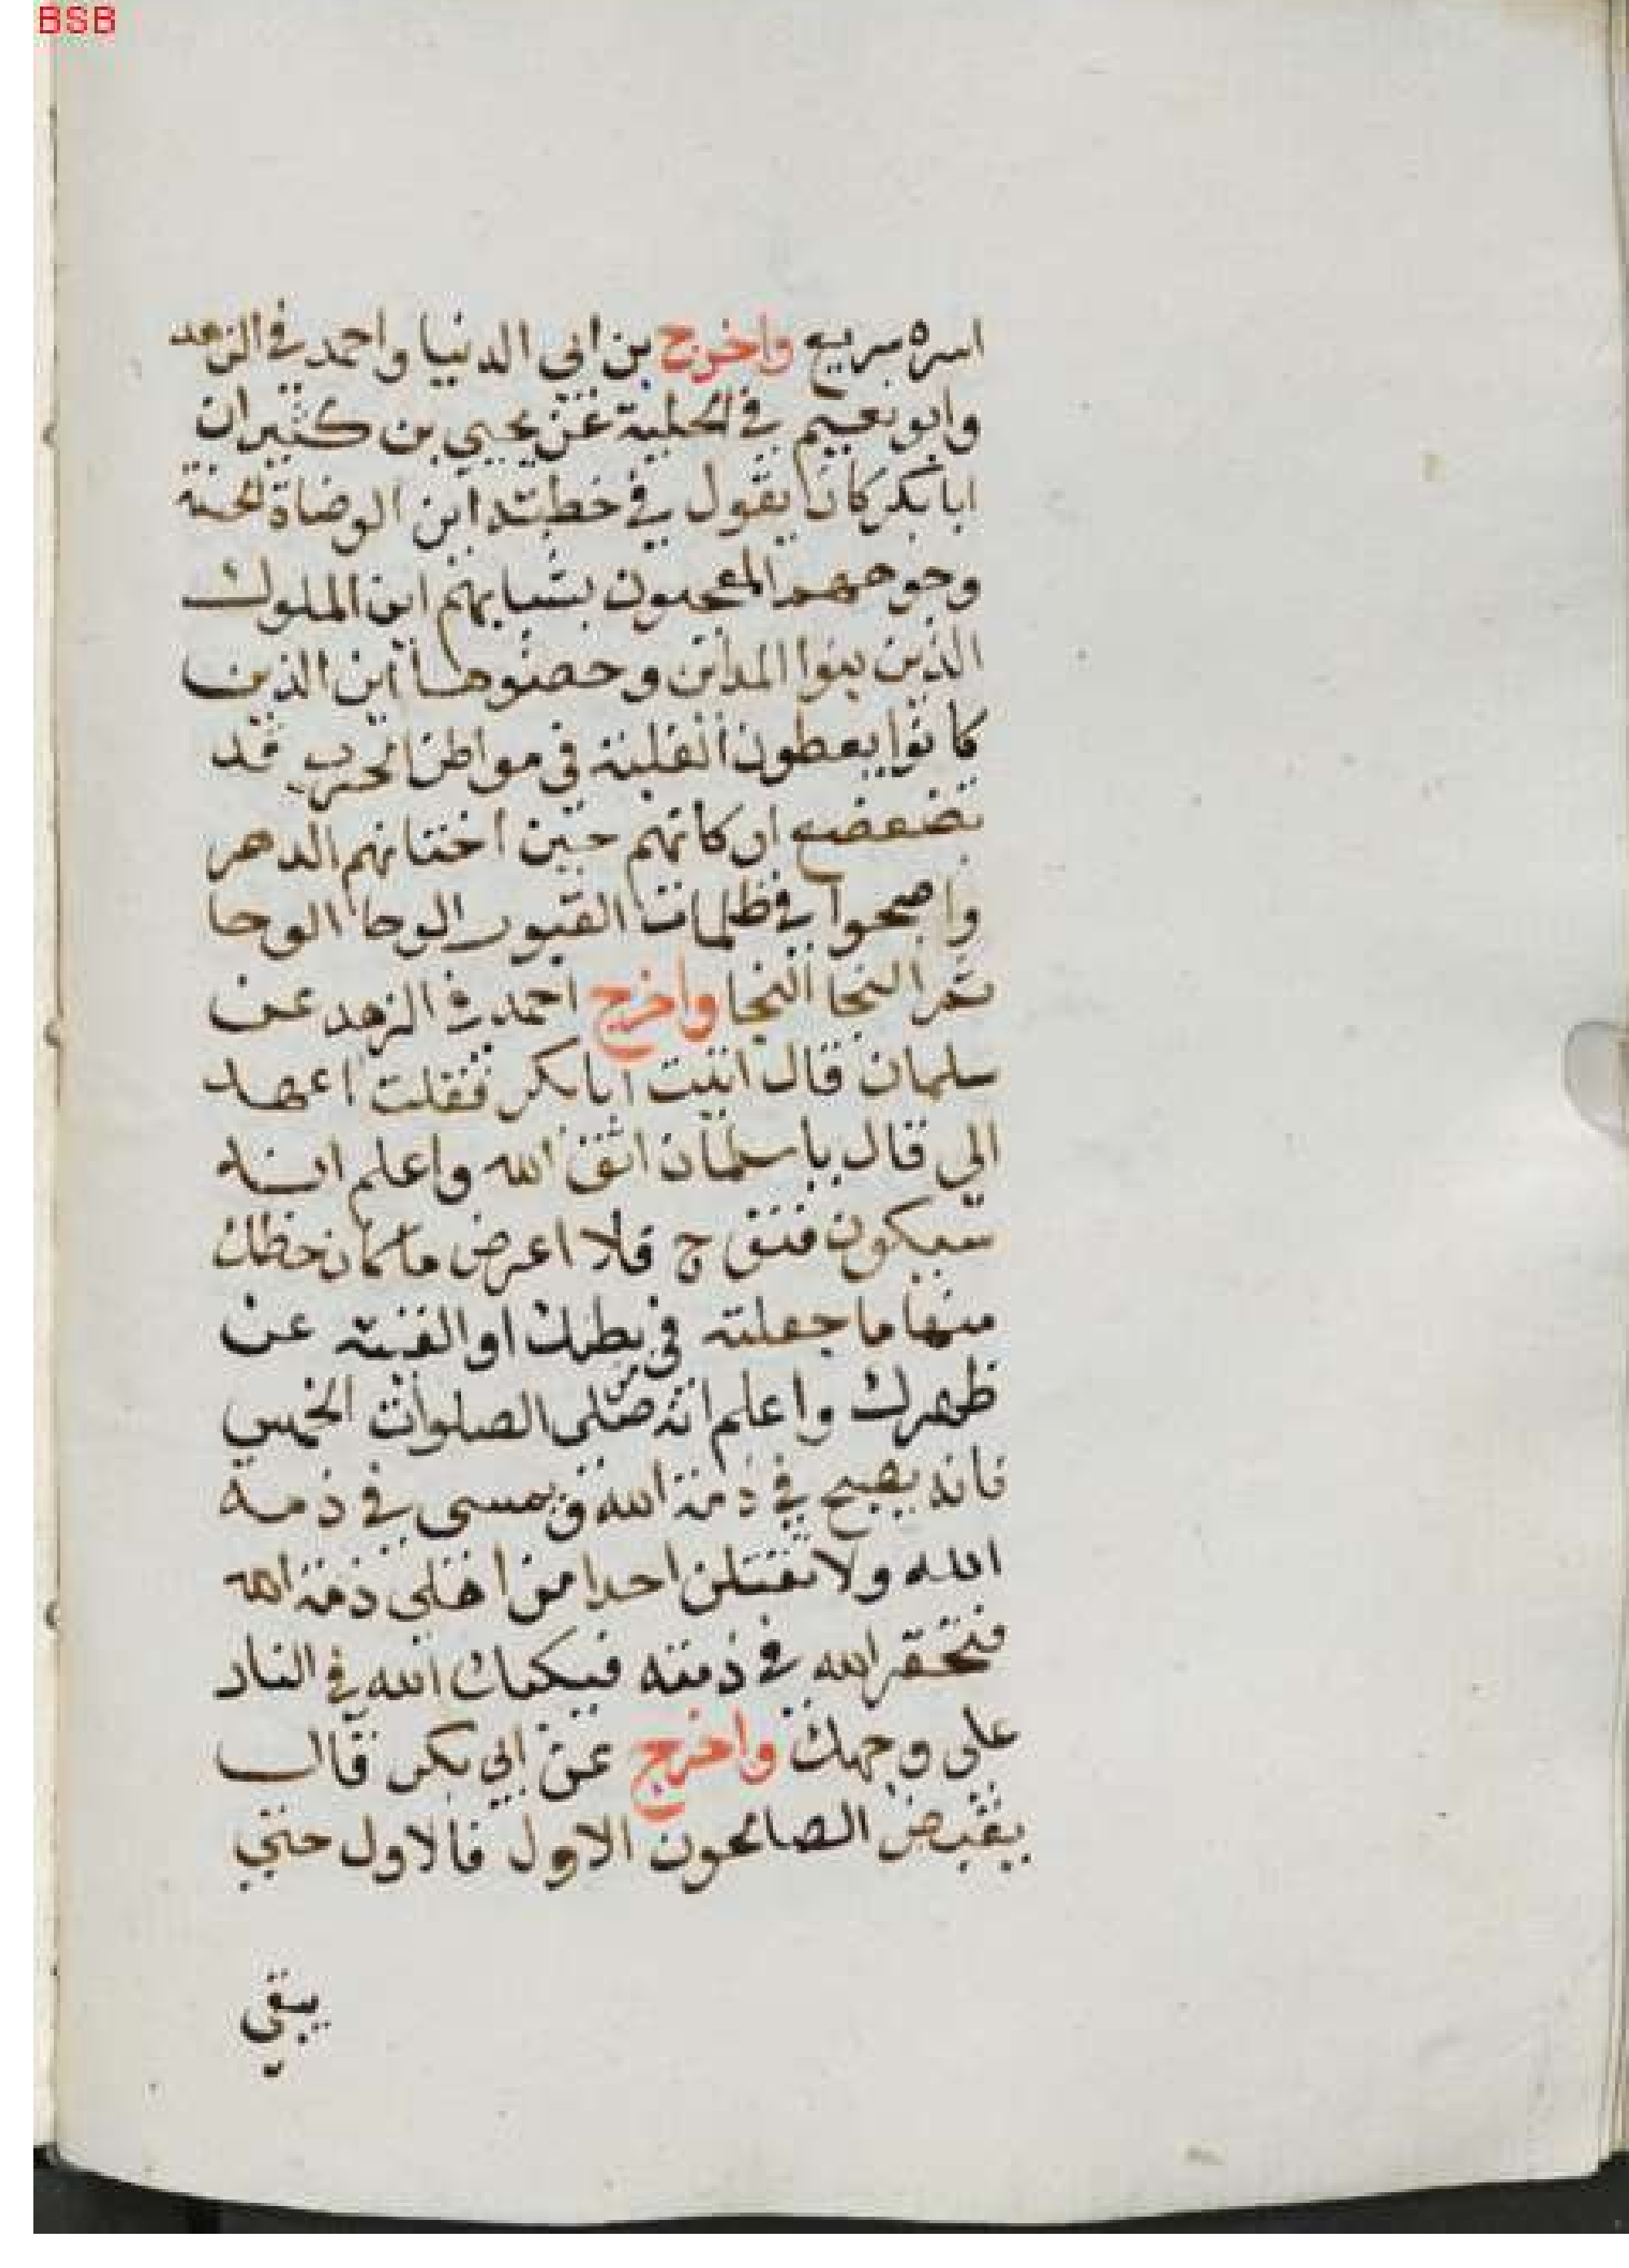 BSB
امره سريع واخرج بن ابي الدنيا واحمد في الزهد
وابو نعيم في الحلية عن يحيي بن كثير ان
ابا بكر كان يقول في خطبته اين الوضاة الحسنة
وجوههم المعجبون بشبابهم اين الملوك
الذين بنوا المداين وحصنوها اين الذين
كانوا يعطون الغلبة في مواطن الحرب قد
تضعضع اركانهم حين اختانهم الدهر
واصبحوا في ظلمات القبور الوحا الوحا
ثم النجا النجا واخرج احمد في الزهد عن
سلمان قال اتيت ابا بكر فقلت اعهد
الي قال يا سلمان اتق الله واعلم انه
سيكون فتوح فلا اعرض ما كان حظك
منها ما جعلته في بطنك او القيته عن
ظهرك واعلم انه من صلى الصلوات الخمس
فانه يصبح في ذمة الله ويمسى في ذمة
الله ولا تقتلن احدا من اهل ذمة الله
فتحقر الله في ذمته فيكبك الله في النار
على وجهك واخرج عن ابي بكر قال
يقبض الصالحون الاول فالاول حتي
يبقي